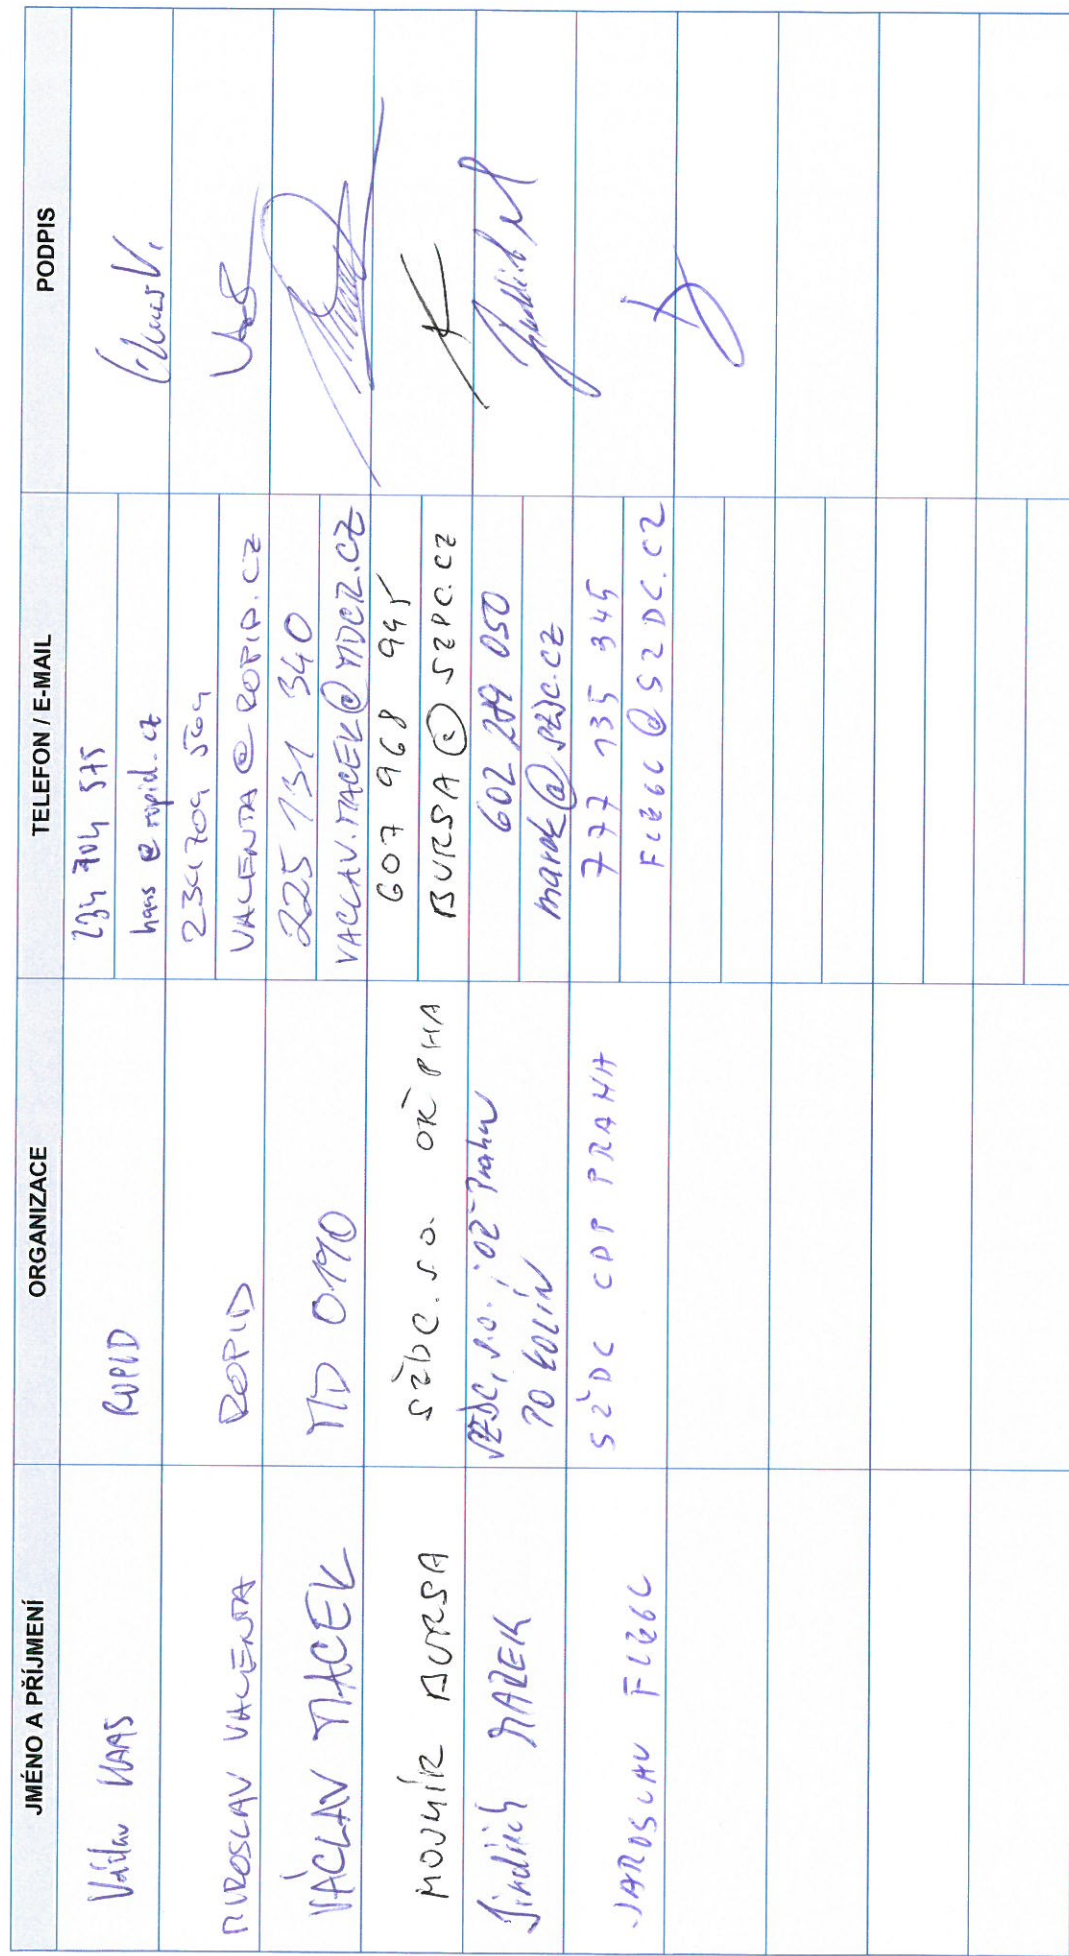 JMÉNO A PŘÍJMENÍ ORGANIZACE TELEFON / E-MAIL PODPIS
Václav HAAS ROPID 234 704 575
haas@ropid.cz
MIROSLAV VALENTA ROPID 234 704 504
VALENTA@ROPID.CZ
VÁCLAV MACEK MD O190 225 131 340
VACLAV.MACEK@MDCR.CZ
MOJMÍR BURSA SŽDC. s.o. OŘ PHA 607 968 995
BURSA@SZDC.CZ
Jindřich MAREK SŽDC, s.o., OŘ Praha 602 289 050
PO KOLÍN marek@szdc.cz
JAROSLAV SŽDC CDP PRAHA 777 135 345